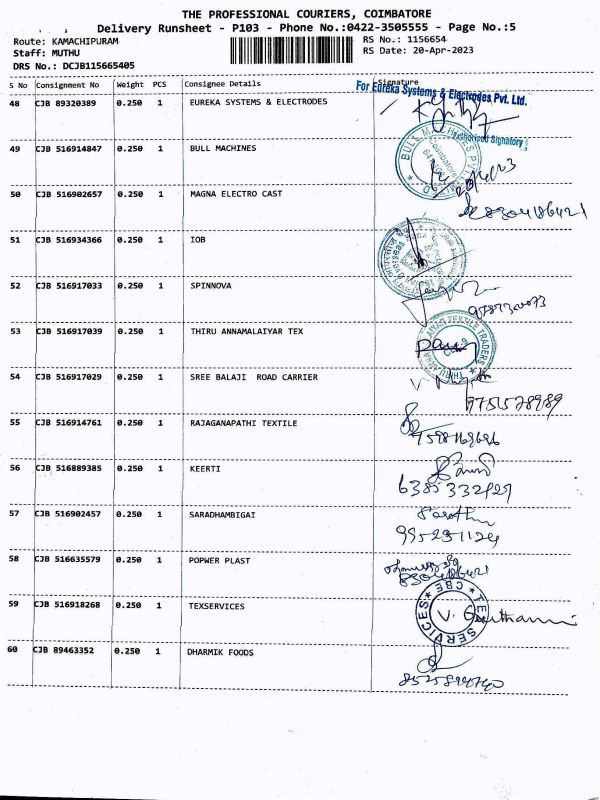 THE PROFESSIONAL COURIERS, COIMBATORE
Delivery Runsheet - P103 - Phone No.:0422-3505555 - Page No.:5
Route: KAMACHIPURAM
RS No.: 1156654
Staff: MUTHU
RS Date: 20-Apr-2023
DRS No.: DCJB115665405
S No Consignment No Weight PCS Consignee Details Signature
For Eureka Systems & Electrodes Pvt. Ltd.
48 CJB 89320389 0.250 1 EUREKA SYSTEMS & ELECTRODES
Authorised Signatory
49 CJB 516914847 0.250 1 BULL MACHINES
50 CJB 516902657 0.250 1 MAGNA ELECTRO CAST
8304186421
51 CJB 516934366 0.250 1 IOB
52 CJB 516917033 0.250 1 SPINNOVA
53 CJB 516917039 0.250 1 THIRU ANNAMALAIYAR TEX
54 CJB 516917029 0.250 1 SREE BALAJI ROAD CARRIER
9751578989
55 CJB 516914761 0.250 1 RAJAGANAPATHI TEXTILE
56 CJB 516889385 0.250 1 KEERTI
57 CJB 516902457 0.250 1 SARADHAMBIGAI
58 CJB 516635579 0.250 1 POPWER PLAST
8304186421
59 CJB 516918268 0.250 1 TEXSERVICES
TEX SERVICES * CBE *
60 CJB 89463352 0.250 1 DHARMIK FOODS